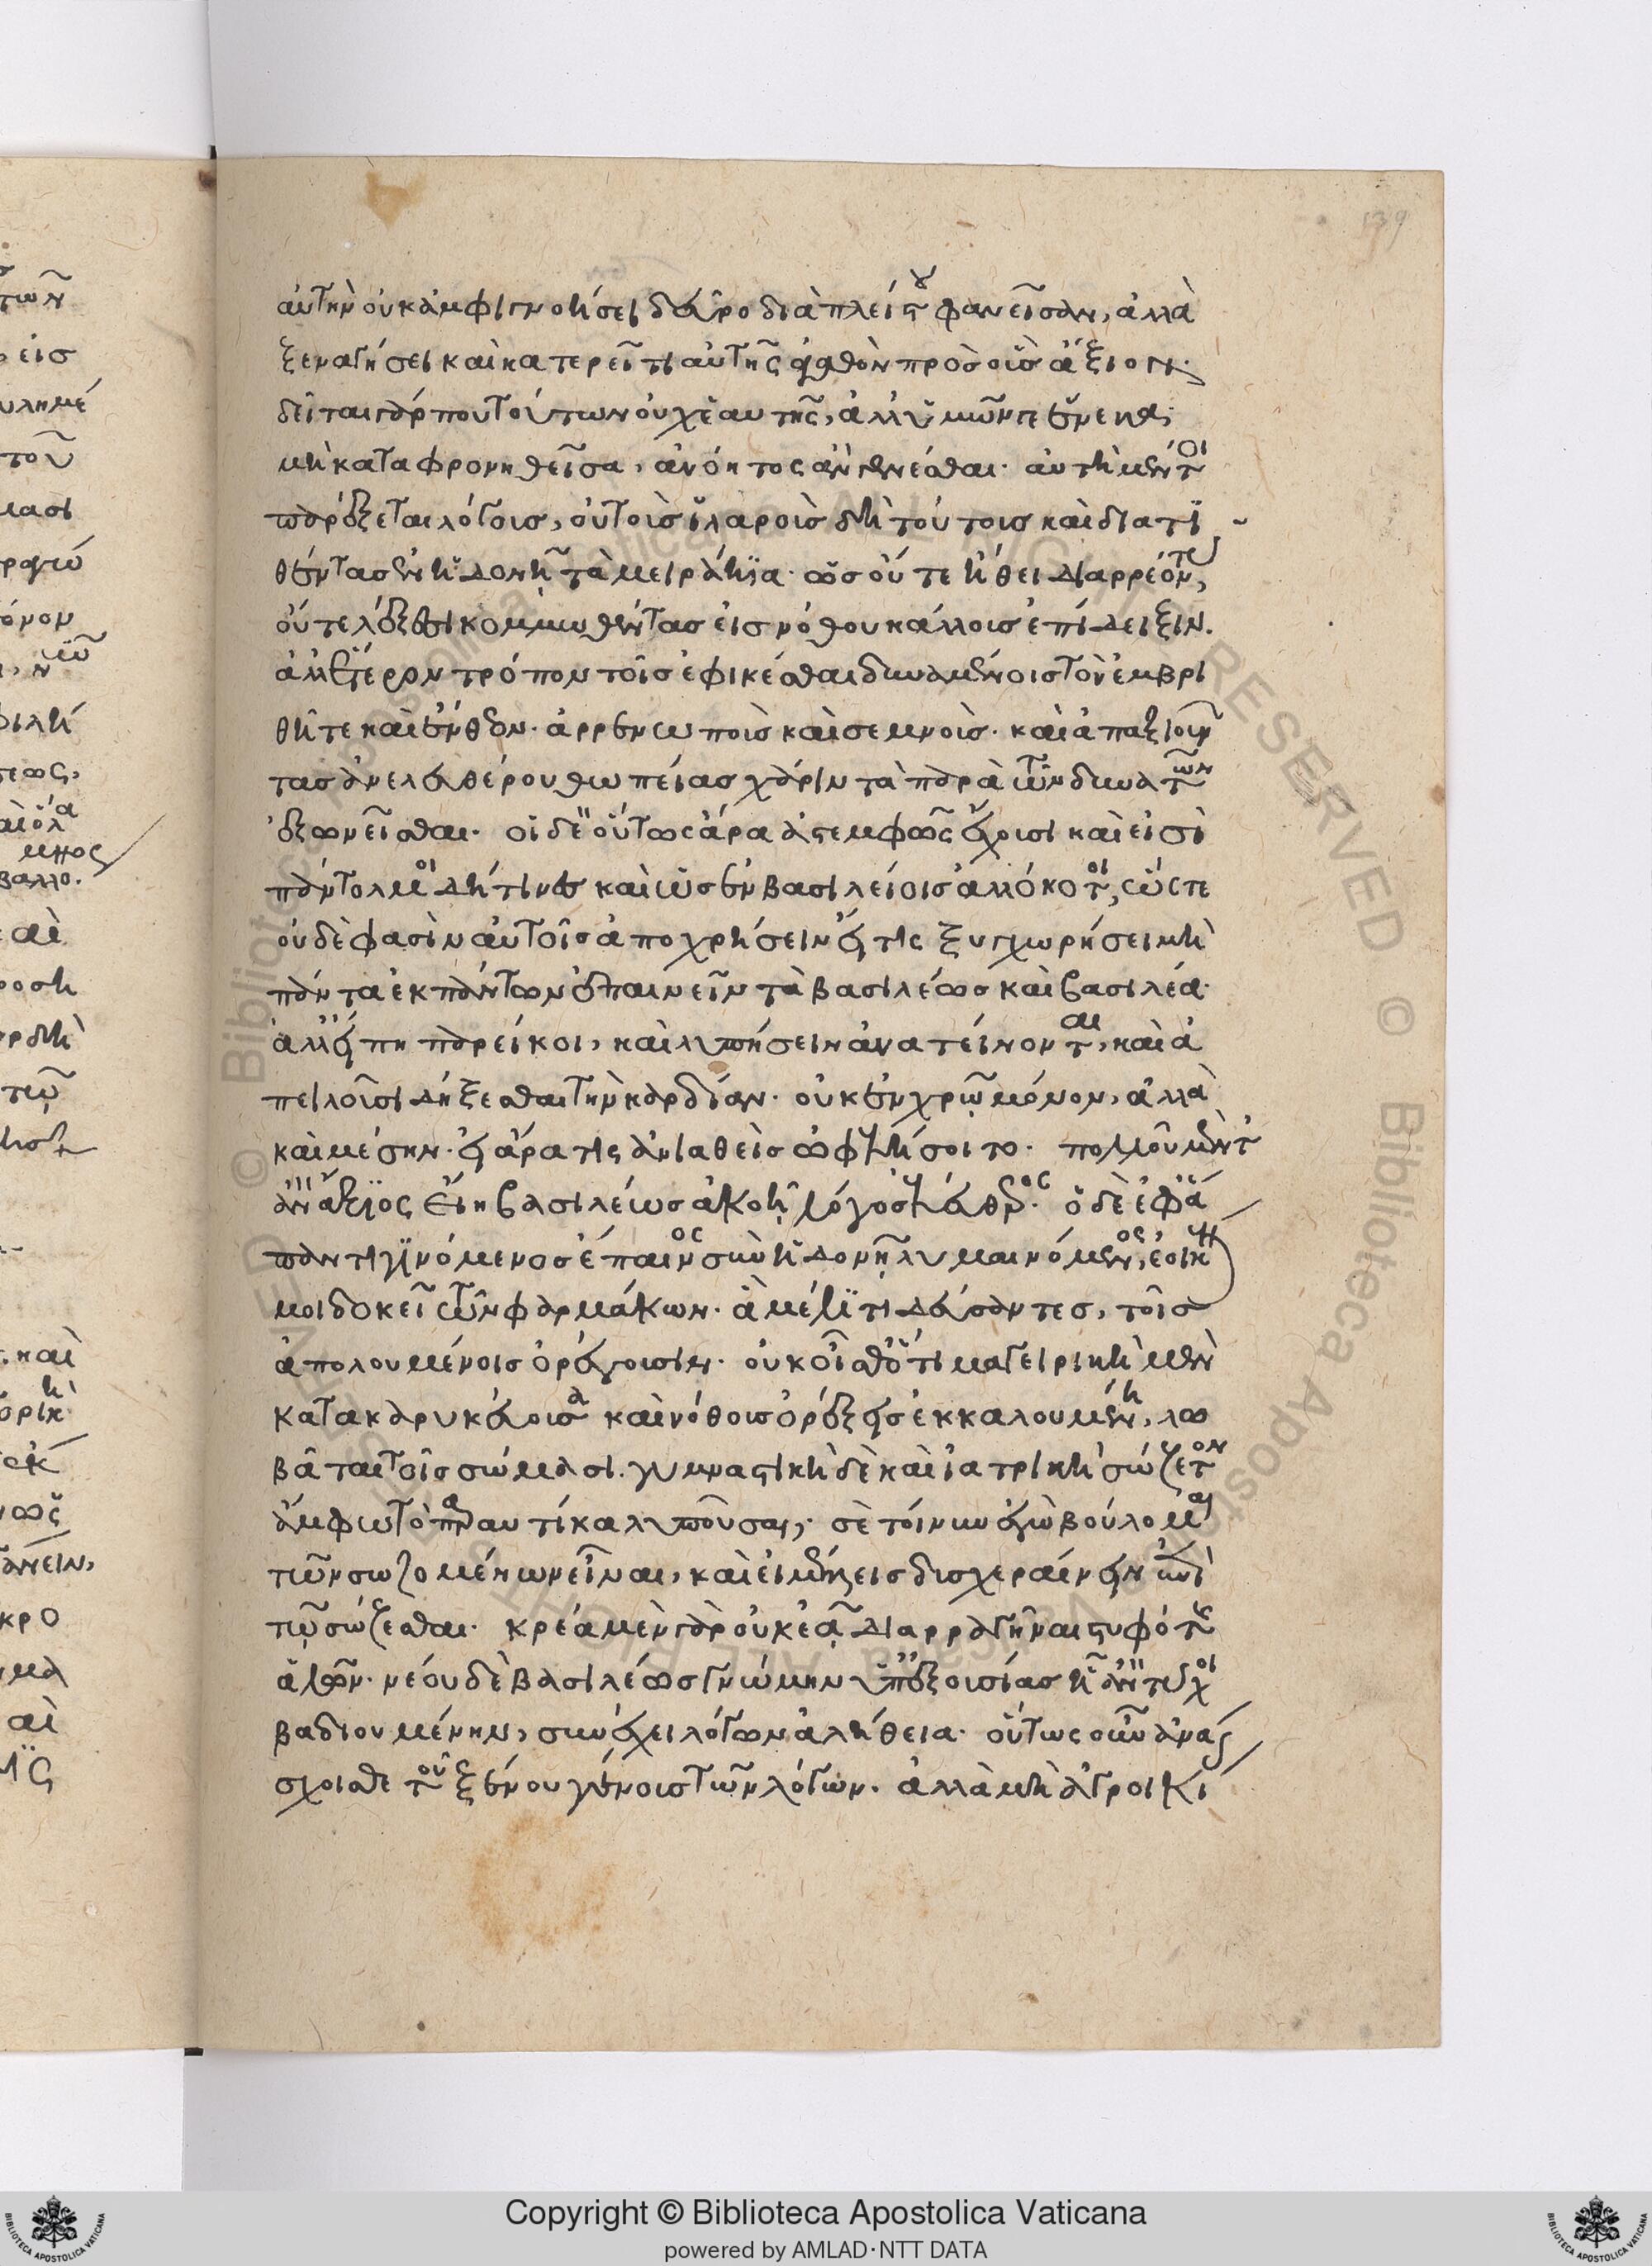 139
αὐτὴν οὐκ ἀμφιγνοήσει δεῦρο διὰ πλείστου φανεῖσαν, ἀλλὰ
ξεναγήσει καὶ κατερεῖ τι αὐτῆς ἀγαθὸν πρὸς οὓς ἄξιον.
δεῖται γάρ που τούτων οὐχ ἑαυτῆς, ἀλλ' ὑμῶν γε ἕνεκα·
μὴ καταφρονηθεῖσα, ἀνόητος ἂν γενέσθαι. αὐτὴ μέντοι
παρέξεται λόγους, οὔτοι ἱλαροὺς δὴ τούτους καὶ διατι
θέντας ἐν ἡδονῇ τὰ μειράκια. ὡς οὔτε ἤθει διαρρέοντας,
οὔτε λέξεσι κομμωθέντας εἰς νόθου κάλλους ἐπίδειξιν.
ἀλλ' ἕτερον τρόπον τοῖς ἐφικέσθαι δυναμένοις τὸν ἐμβρι
θῆ τε καὶ ἔνθεον. ἀρρενωποὺς καὶ σεμνούς. καὶ ἀπαξιοῦν
τας ἀνελευθέρου θωπείας χάριν τὰ παρὰ τῶν δυνατῶν
ἐξωνεῖσθαι. οἱ δὲ οὕτως ἄρα ἀστεμφῶς ἔχουσι καὶ εἰσὶ
πάντολμοι δή τινες καὶ ὡς ἐν βασιλείοις ἀλλόκοτοι, ὥστε
οὐδὲ φασὶν αὐτοῖς ἀποχρήσειν εἴ τις ξυγχωρήσει μὴ
πάντα ἐκ πάντων ἐπαινεῖν τὰ βασιλέως καὶ βασιλέα.
ἀλλ' εἴ πη παρείκοι, καὶ λυπήσειν ἀνατείνονται, καὶ ἀ
πειλοῦσι δήξεσθαι τὴν καρδίαν. οὐκ ἐν χρῷ μόνον, ἀλλὰ
καὶ μέσην. εἰ ἄρα τις ἀνιαθεὶς ὠφελήσοιτο. πολλοῦ μέντ'
ἂν ἄξιος εἴη βασιλέως ἀκοῇ λόγος ἐλεύθερος. ὁ δὲ ἐφ' ἅ
παντι γινόμενος ἔπαινος σὺν ἡδονῇ λυμαινόμενος, ἐοικέναι
μοι δοκεῖ τῶν φαρμάκων. ἃ μέλιτι δεύσαντες, τοῖς
ἀπολουμένοις ὀρέγουσιν. οὐκ οἶσθ' ὅτι μαγειρικὴ μὲν
κατακαρυκεύουσα καὶ νόθους ὀρέξεις ἐκκαλουμένη, λω
βᾶται τοῖς σώμασι. γυμναστικὴ δὲ καὶ ἰατρικὴ σώζετον
ἄμφω τὸ παραυτίκα λυποῦσαι. σὲ τοίνυν ἐγὼ βούλομαι
τῶν σωζομένων εἶναι, καὶ εἰ μέλλεις δυσχεραίνειν ἐπὶ
τῷ σώζεσθαι. κρέα μὲν γὰρ οὐκ ἐᾷ διαρραγῆναι στυφότης
ἁλῶν. νέου δὲ βασιλέως γνώμην ὑπ' ἐξουσίας ᾗ ἂν τύχοι
βαδιουμένην, συνέχει λόγων ἀλήθεια. οὕτως οὖν ἀνάσ
σχοισθε τοῦ ξένου γένους τῶν λόγων. ἀλλὰ μὴ ἀγροικί
Copyright © Biblioteca Apostolica Vaticana
powered by AMLAD·NTT DATA